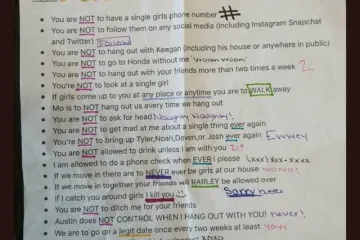 You are NOT to have a single girls phone number #
You are NOT to follow them on any social media (including Instagram Snapchat
and Twitter) Follow
You are NOT to hang out with Keegan (including his house or anywhere in public)
You are NOT to go to Honda without me 'vroom vroom'
You are NOT to hang out with your friends more than two times a week 2
You're NOT to look at a single girl
If girls come up to you at any place or anytime you are to WALK away
Mo is to NOT hang out us every time we hang out
You are NOT to ask for head Naughty Naughty!
You are NOT to get mad at me about a single thing ever again
You're NOT to bring up Tyler,Noah,Devon,or Josh ever again Ewwey
You are NOT allowed to drink unless I am with you 21?
I am allowed to do a phone check when EVER I please (xxx)xxx-xxxx
If we move in there are to NEVER ever be girls at our house
If we move in together your friends will RARLEY be allowed over
If I catch you around girls I kill you Sorry
You are NOT to ditch me for your friends
Austin does NOT CONTROL WHEN I HANG OUT WITH YOU! never!
We are to go on a legit date once every two weeks at least yayy
xoxo